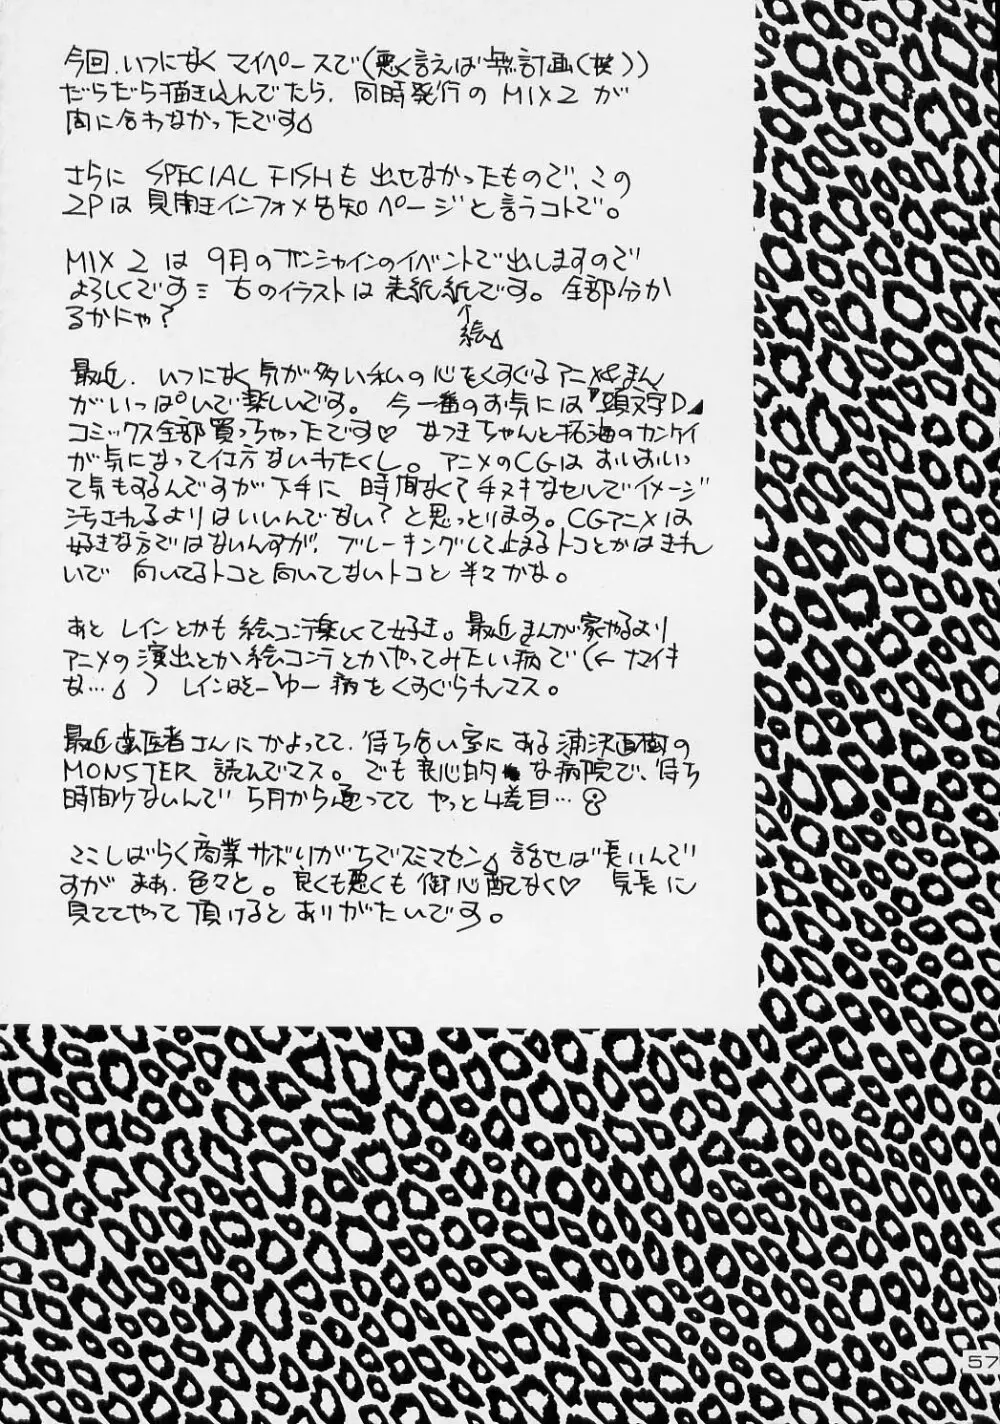 今回、いつになく マイペースで(悪く言えば無計画(笑))
だらだら描き込んでたら、同時発行の MIX2 が
間に合わなかったです
さらに SPECIAL FISHも 出せなかったもので、この
2Pは インフォメ告知ページと言うコトで。
MIX 2 は 9月のサンシャインのイベントで出しますので
よろしくです 右のイラストは 表紙紙です。 全部分か
るかにゃ?
↑
絵
最近、いつになく 気が多い私の心をくすぐるアニメ&まん
がいっぱいで楽しいです。 今一番のお気には『頭文字D』
コミックス全部買っちゃったです♡ なつきちゃんと拓海のカンケイ
が気になって仕方ないわたくし。 アニメのCGは おいおいっ
て気もするんですが 下手に 時間なくて手ヌキなセルでイメージ
汚されるよりはいいんでない? と思っとります。CGアニメは
好きな方ではないんすが、ブレーキングして止まるトコとかはきれ
いで 向いてるトコと向いてないトコと 半々かな。
あと レインとかも 絵コンテ楽しくて好き。最近まんが家やるより
アニメの演出とか絵コンテとかやってみたい病で(←ナマイキ
な… ) レインはそーゆー病をくすぐられマス。
最近歯医者さんにかよってて、待ち合い室にある浦沢直樹の
MONSTER 読んでマス。でも良心的 な病院で、待ち
時間少ないんで 5月から通ってて やっと4巻目…
ここしばらく商業サボりがちでスミマセン 話せば長いんで
すが まあ、色々と。 良くも悪くも御心配なく♡ 気長に
見ててやって頂けるとありがたいです。
57